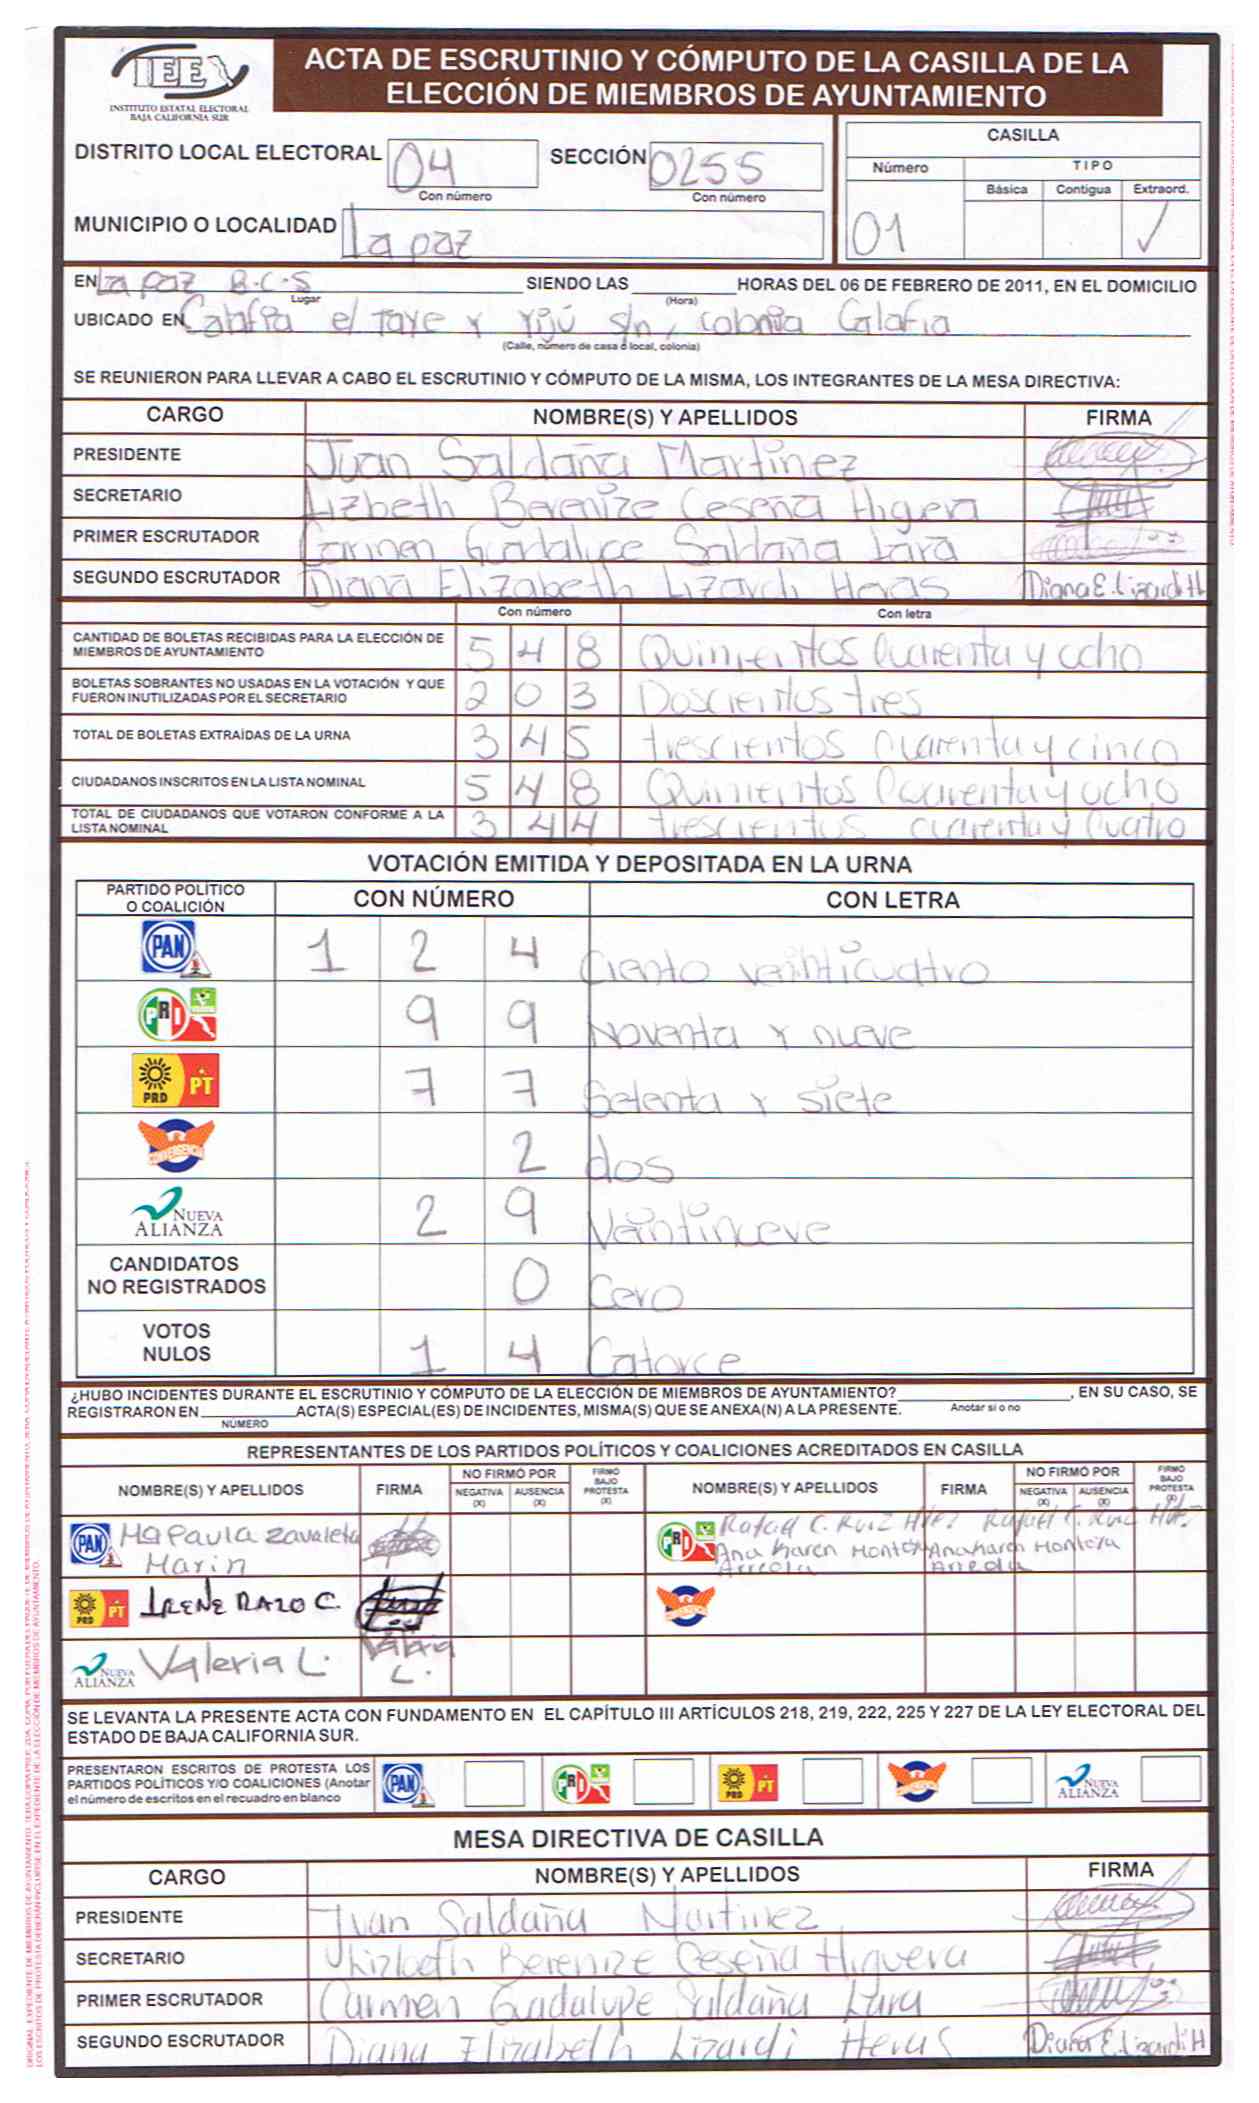 IEEX
INSTITUTO ESTATAL ELECTORAL
BAJA CALIFORNIA SUR
ACTA DE ESCRUTINIO Y CÓMPUTO DE LA CASILLA DE LA
ELECCIÓN DE MIEMBROS DE AYUNTAMIENTO
DISTRITO LOCAL ELECTORAL 04 SECCIÓN 0255
Con número Con número
MUNICIPIO O LOCALIDAD La paz
CASILLA
Número TIPO
Básica Contigua Extraord.
01 ✓
EN La paz B.C.S SIENDO LAS HORAS DEL 06 DE FEBRERO DE 2011, EN EL DOMICILIO
Lugar (Hora)
UBICADO EN Calafia el Taxe y Yijú s/n, colonia Calafia
(Calle, número de casa ó local, colonia)
SE REUNIERON PARA LLEVAR A CABO EL ESCRUTINIO Y CÓMPUTO DE LA MISMA, LOS INTEGRANTES DE LA MESA DIRECTIVA:
CARGO NOMBRE(S) Y APELLIDOS FIRMA
PRESIDENTE Juan Saldaña Martinez
SECRETARIO Lizbeth Berenize Ceseña Higuera
PRIMER ESCRUTADOR Carmen Guadalupe Saldaña Lara
SEGUNDO ESCRUTADOR Diana Elizabeth Lizardi Heras Diana E. Lizardi H
Con número Con letra
CANTIDAD DE BOLETAS RECIBIDAS PARA LA ELECCIÓN DE
MIEMBROS DE AYUNTAMIENTO 5 4 8 Quinientos Cuarenta y ocho
BOLETAS SOBRANTES NO USADAS EN LA VOTACIÓN Y QUE
FUERON INUTILIZADAS POR EL SECRETARIO 2 0 3 Doscientos tres
TOTAL DE BOLETAS EXTRAÍDAS DE LA URNA 3 4 5 trescientos cuarenta y cinco
CIUDADANOS INSCRITOS EN LA LISTA NOMINAL 5 4 8 Quinientos Cuarenta y ocho
TOTAL DE CIUDADANOS QUE VOTARON CONFORME A LA
LISTA NOMINAL 3 4 4 trescientos cuarenta y Cuatro
VOTACIÓN EMITIDA Y DEPOSITADA EN LA URNA
PARTIDO POLÍTICO
O COALICIÓN CON NÚMERO CON LETRA
PAN 1 2 4 Ciento veinticuatro
PRI 9 9 Noventa y nueve
PRD PT 7 7 Setenta y siete
CONVERGENCIA 2 dos
NUEVA ALIANZA 2 9 Veintinueve
CANDIDATOS
NO REGISTRADOS 0 Cero
VOTOS
NULOS 1 4 Catorce
¿HUBO INCIDENTES DURANTE EL ESCRUTINIO Y CÓMPUTO DE LA ELECCIÓN DE MIEMBROS DE AYUNTAMIENTO? , EN SU CASO, SE
REGISTRARON EN ACTA(S) ESPECIAL(ES) DE INCIDENTES, MISMA(S) QUE SE ANEXA(N) A LA PRESENTE. Anotar si o no
NÚMERO
REPRESENTANTES DE LOS PARTIDOS POLÍTICOS Y COALICIONES ACREDITADOS EN CASILLA
NOMBRE(S) Y APELLIDOS FIRMA NO FIRMÓ POR NEGATIVA (X) AUSENCIA (X) FIRMÓ BAJO PROTESTA (X) NOMBRE(S) Y APELLIDOS FIRMA NO FIRMÓ POR NEGATIVA (X) AUSENCIA (X) FIRMÓ BAJO PROTESTA (X)
PAN Ma Paula Zavaleta PRI Rafael C. Ruiz Hdez Rafael C. Ruiz Hdez
Marin Ana Karen Montoya Ana Karen Montoya
Arreola Arreola
PRD PT IRENE RAZO C. CONVERGENCIA
NUEVA ALIANZA Valeria L. Valeria
L.
SE LEVANTA LA PRESENTE ACTA CON FUNDAMENTO EN EL CAPÍTULO III ARTÍCULOS 218, 219, 222, 225 Y 227 DE LA LEY ELECTORAL DEL
ESTADO DE BAJA CALIFORNIA SUR.
PRESENTARON ESCRITOS DE PROTESTA LOS
PARTIDOS POLÍTICOS Y/O COALICIONES (Anotar
el número de escritos en el recuadro en blanco
PAN PRI PRD PT CONVERGENCIA NUEVA ALIANZA
MESA DIRECTIVA DE CASILLA
CARGO NOMBRE(S) Y APELLIDOS FIRMA
PRESIDENTE Juan Saldaña Martinez
SECRETARIO Lizbeth Berenize Ceseña Higuera
PRIMER ESCRUTADOR Carmen Guadalupe Saldaña Lara
SEGUNDO ESCRUTADOR Diana Elizabeth Lizardi Heras Diana E. Lizardi H